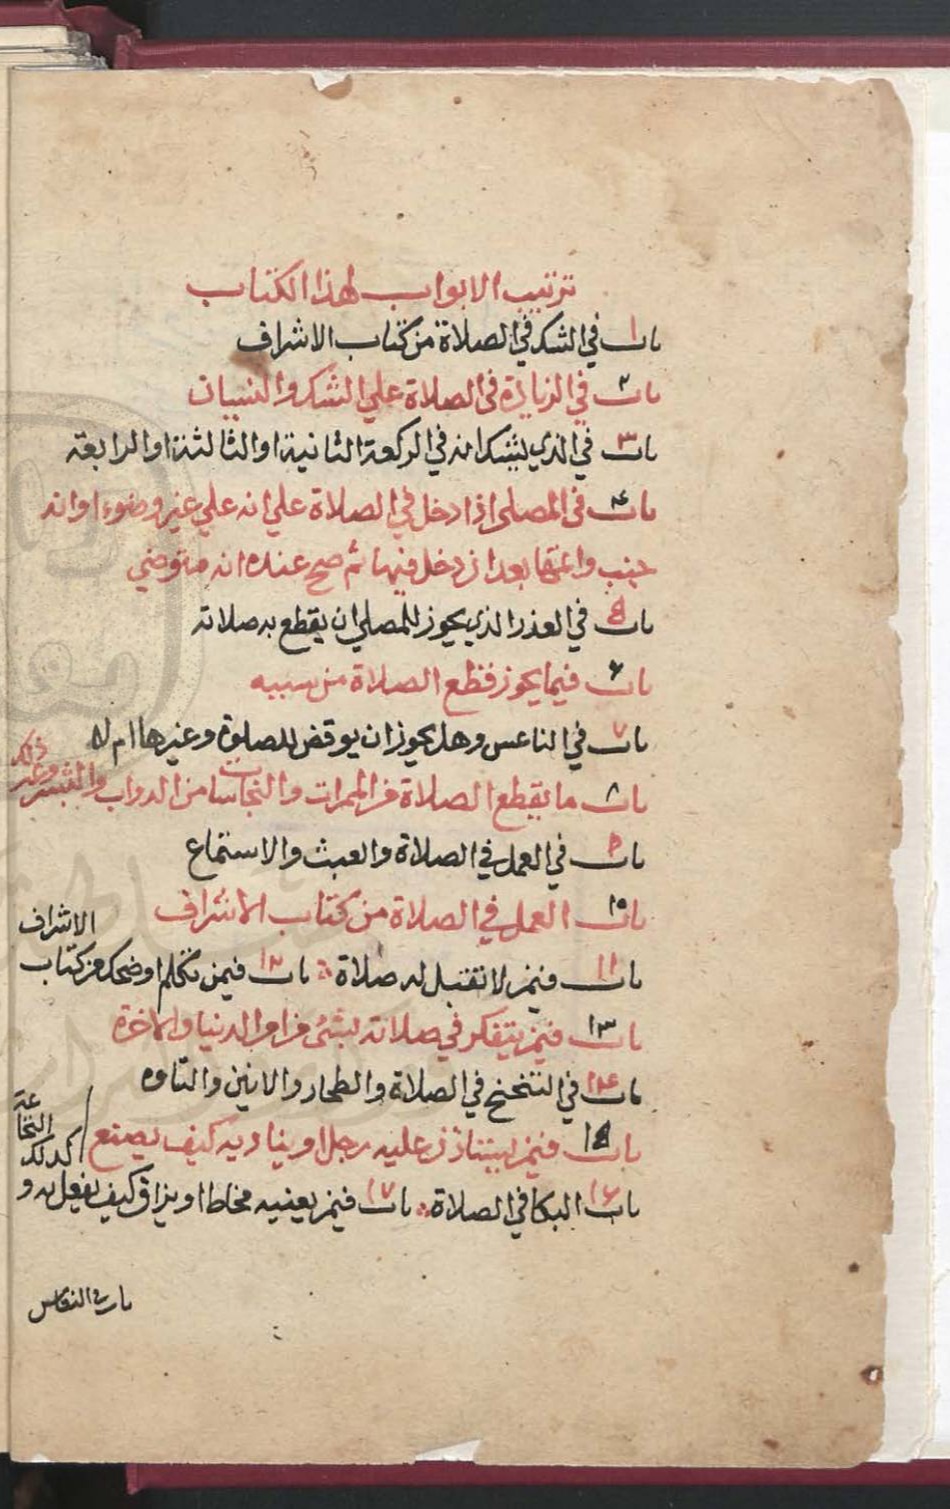 ترتيب الابواب لهذا الكتاب
باب ١ في الشك في الصلاة من كتاب الاشراف
باب ٢ في الزيادة في الصلاة علي الشك والنسيان
باب ٣ في الذي يشك انه في الركعة الثانية او الثالثة او الرابعة
باب ۴ في المصلي اذا دخل في الصلاة علي انه علي غير وضوء او انه
جنب واعتقد بعد ان دخل فيها ثم صح عنده انه متوضي
باب ۵ في العذر الذي يجوز للمصلي ان يقطع به صلاته
باب ۶ فيما يجوز قطع الصلاة من سببه
باب ٧ في الناعس وهل يجوز ان يوقض للصلوة وغيرها ام لا
باب ٨ ما يقطع الصلاة من الممرات والنجاسات من الدواب والبشر وغير ذلك
باب ٩ في العمل في الصلاة والعبث والاستماع
باب ١٠ العمل في الصلاة من كتاب الاشراف
باب ١١ فيمن لا تقبل له صلاة باب ١٢ فيمن تكلم او ضحك من كتاب الاشراف
باب ١٣ فيمن يتفكر في صلاته بشئ من امر الدنيا والاخرة
باب ١۴ في التنحنح في الصلاة والانين والتاوه
باب ١۵ فيمن يستاذن عليه رجل او يناديه كيف يصنع
باب ١۶ البكا في الصلاة باب ١٧ فيمن يعنيه مخاط او بزاق كيف يفعل به و النخاعة كذلك
باب في النعاس